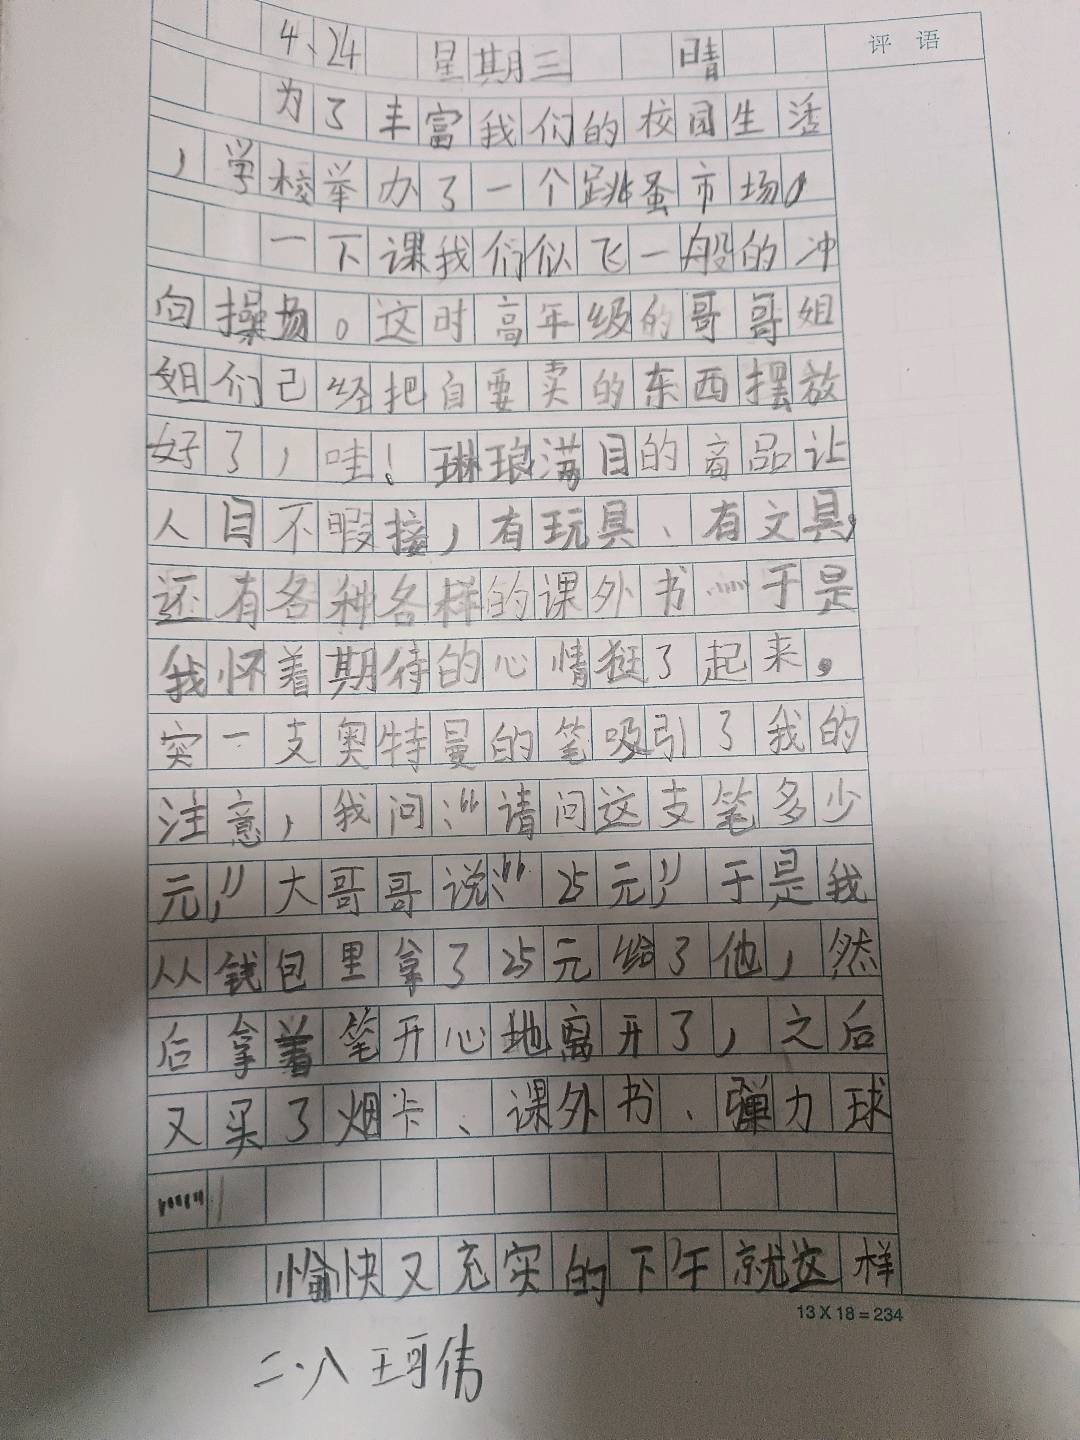 4、24 星期三 晴
评语
为了丰富我们的校园生活
，学校举办了一个跳蚤市场。
一下课我们似飞一般的冲
向操场。这时高年级的哥哥姐
姐们已经把自要卖的东西摆放
好了，哇！琳琅满目的商品让
人目不暇接，有玩具、有文具，
还有各种各样的课外书……于是
我怀着期待的心情逛了起来。
突一支奥特曼的笔吸引了我的
注意，我问：“请问这支笔多少
元，”大哥哥说：“25元，”于是我
从钱包里拿了25元给了他，然
后拿着笔开心地离开了，之后
又买了烟卡、课外书、弹力球
……
愉快又充实的下午就这样
13 X 18 = 234
二·八 王珂伟